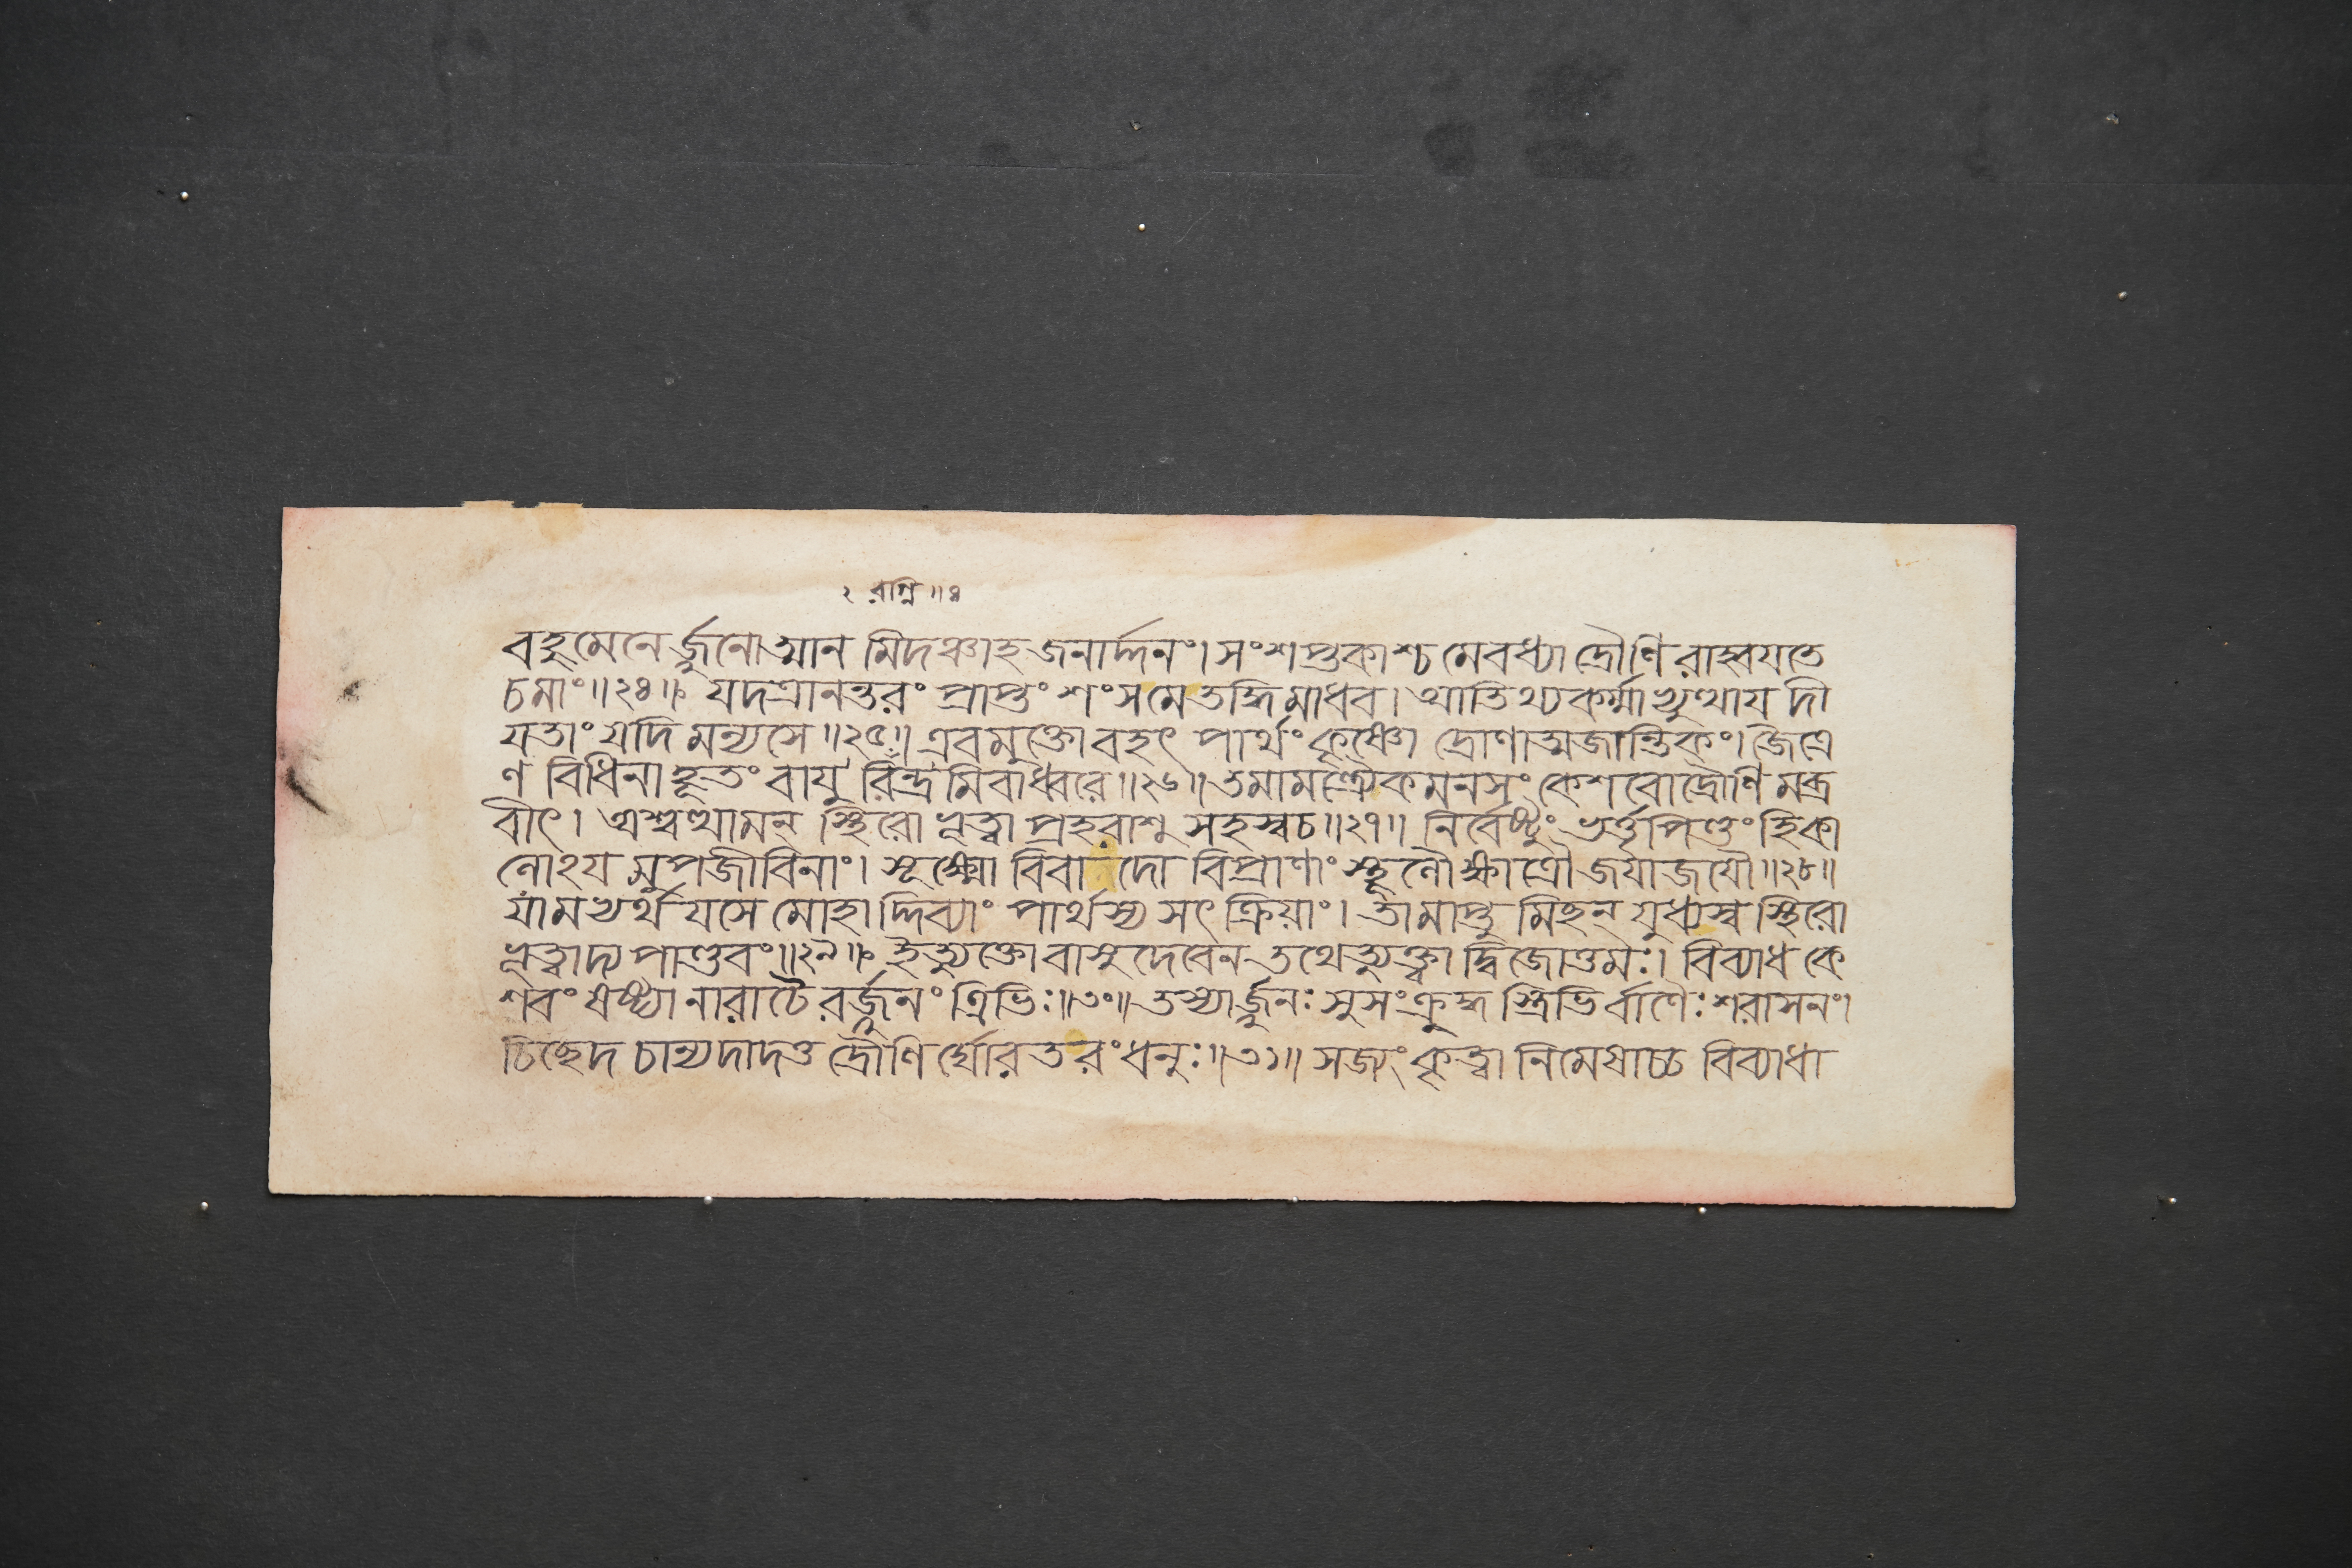 ২ রাগ্নি ॥ ৪
বহুমেনেৰ্জ্জুনোত্মান মিদঞ্চাহ জনাৰ্দ্দনং। সংশপ্তকাশ্চ মেবধ্যা দ্ৰৌণি ৰাহ্বযতে
চমাং॥২৪॥ যদত্ৰানন্তৰং প্ৰাপ্তং শংসমেতদ্ধিমাধব। আতিথ্যকৰ্ম্মাভ্যুত্থায দী
যতাং যদি মন্যসে॥২৫॥ এবমুক্তোবহৎ পাৰ্থং কৃষ্ণো দ্ৰোণাত্মজান্তিকং। জৈত্ৰে
ণ বিধিনাহূতং বাযু ৰিন্দ্ৰমিবাধ্বৰে॥২৬॥ তমামন্ত্ৰ্যৈকমনসং কেশবোদ্ৰৌণি মব্ৰ
বীৎ। অশ্বত্থামন্ স্থিৰো ভূত্বা প্ৰহৰাশু সহস্বচ॥২৭॥ নিৰ্বেষ্টুং ভৰ্ত্তৃপিণ্ডং হিকা
নোঽয মুপজীবিনাং। সূক্ষ্মো বিবাদো বিপ্ৰাণাং স্থূলৌক্ষাত্ৰৌ জযাজযৌ॥২৮॥
যামভ্যৰ্থযসে মোহাদ্দিব্যাং পাৰ্থস্য সৎ ক্ৰিযাং। তামাপ্তু মিচ্ছন্ যুধ্যস্ব স্থিৰো
ভূত্বাদ্য পাণ্ডবং॥২৯॥ ইত্যুক্তোবাসুদেবেন তথেত্যুক্ত্বা দ্বিজোত্তমঃ। বিব্যাধ কে
শবং ষষ্ট্যা নাৰাচৈ ৰৰ্জ্জুনং ত্ৰিভিঃ॥৩০॥ তস্যাৰ্জ্জুনঃ সুসংক্ৰুদ্ধ স্ত্ৰিভিৰ্বাণৈঃ শৰাসনং।
চিচ্ছেদ চান্যদাদত্ত দ্ৰৌণি ৰ্ঘোৰতৰং ধনুঃ॥৩১॥ সজ্যং কৃত্বা নিমেষাচ্চ বিব্যাধা